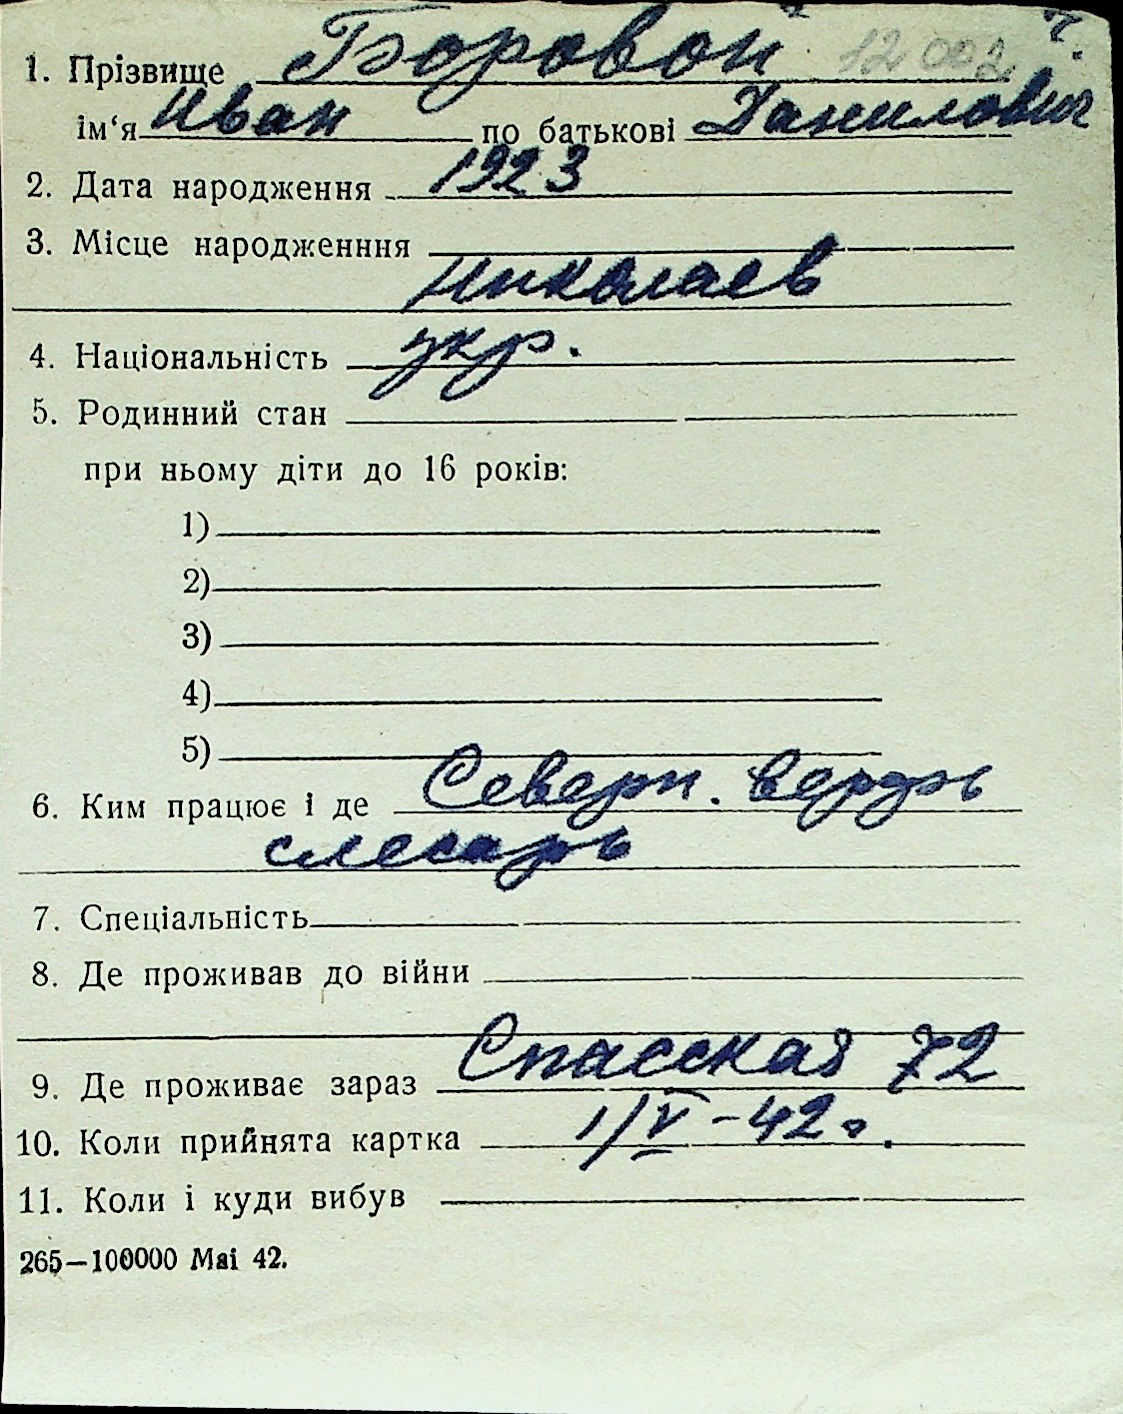 ч.
1. Прізвище Боровой 12002
ім‘я Иван по батькові Данилович
2. Дата народження 1923
3. Місце народженння
Николаев
4. Національність укр.
5. Родинний стан
при ньому діти до 16 років:
1)
2)
3)
4)
5)
6. Ким працює і де Северн. верфь
слесарь
7. Спеціальність
8. Де проживав до війни
9. Де проживає зараз Спасская 72
10. Коли прийнята картка 1/V-42 г.
11. Коли і куди вибув
265—100000 Mai 42.